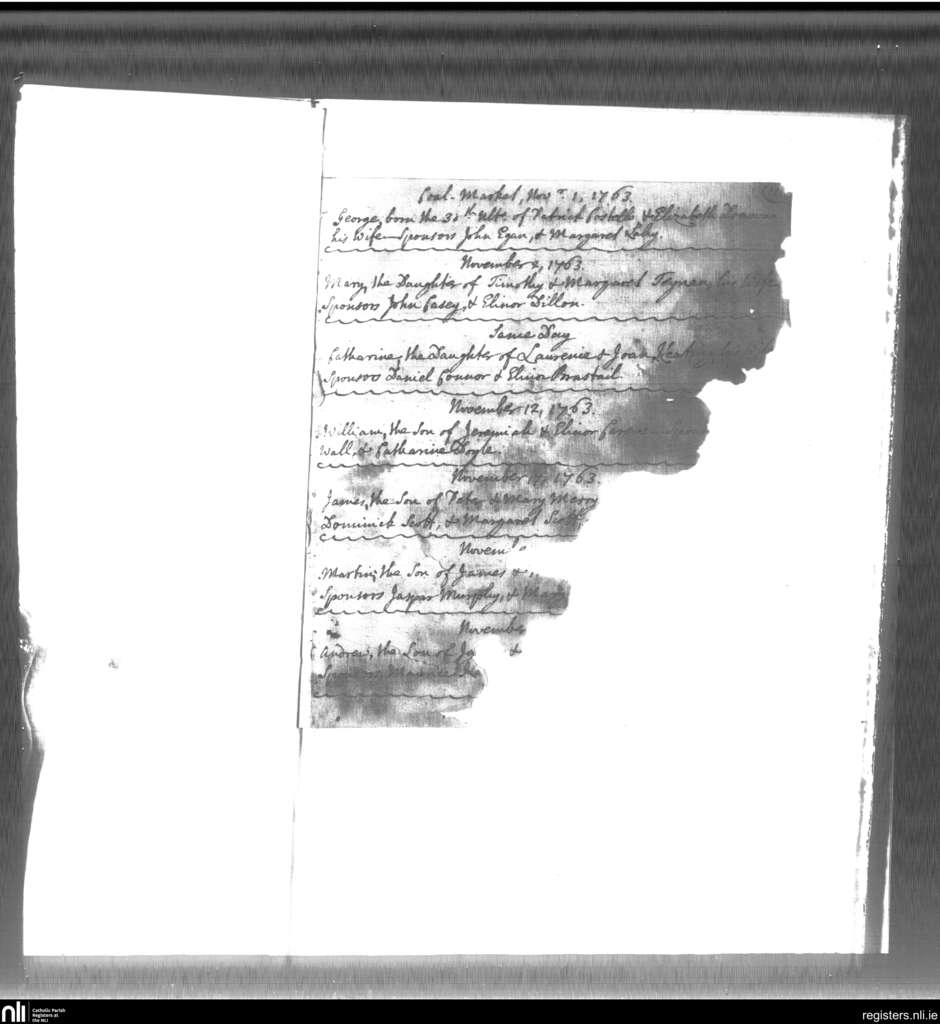 Coal-Market, Nov.r 1, 1763.
George, born the 30th Ult. of Patrick Costollo & Elizabeth
his Wife Sponsors John Egan, & Margaret
November 2, 1763.
Mary, the Daughter of Timothy & Margaret his Wife
Sponsors John Casey, & Elinor Dillon.
Same Day
Catharine, the Daughter of Laurence & Joan Keating
Sponsors Daniel Connor & Elinor
November 12, 1763.
William, the Son of Jeremiah & Elinor
Wall, & Catharine Doyle.
November 1763.
James, the Son of Peter & Mary Merry
Dominick Scott, & Margaret Scott
Novem
Martin, the Son of James &
Sponsors Jaspar Murphy, & Mary
November
Andrew, the Son of Ja &
Sponsors
nli
Catholic Parish
Registers at
the NLI
registers.nli.ie